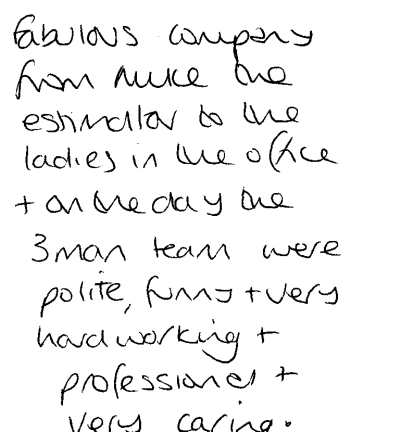 fabulous company
from Mike the
estimator to the
ladies in the office
+ on the day the
3 man team were
polite, funny + very
hard working +
professional +
very caring.